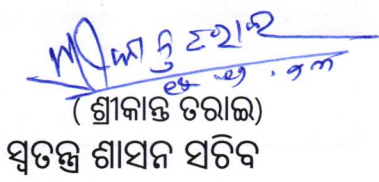 ( ଶ୍ରୀକାନ୍ତ ତରାଇ)
ସ୍ୱତନ୍ତ୍ର ଶାସନ ସଚିବ